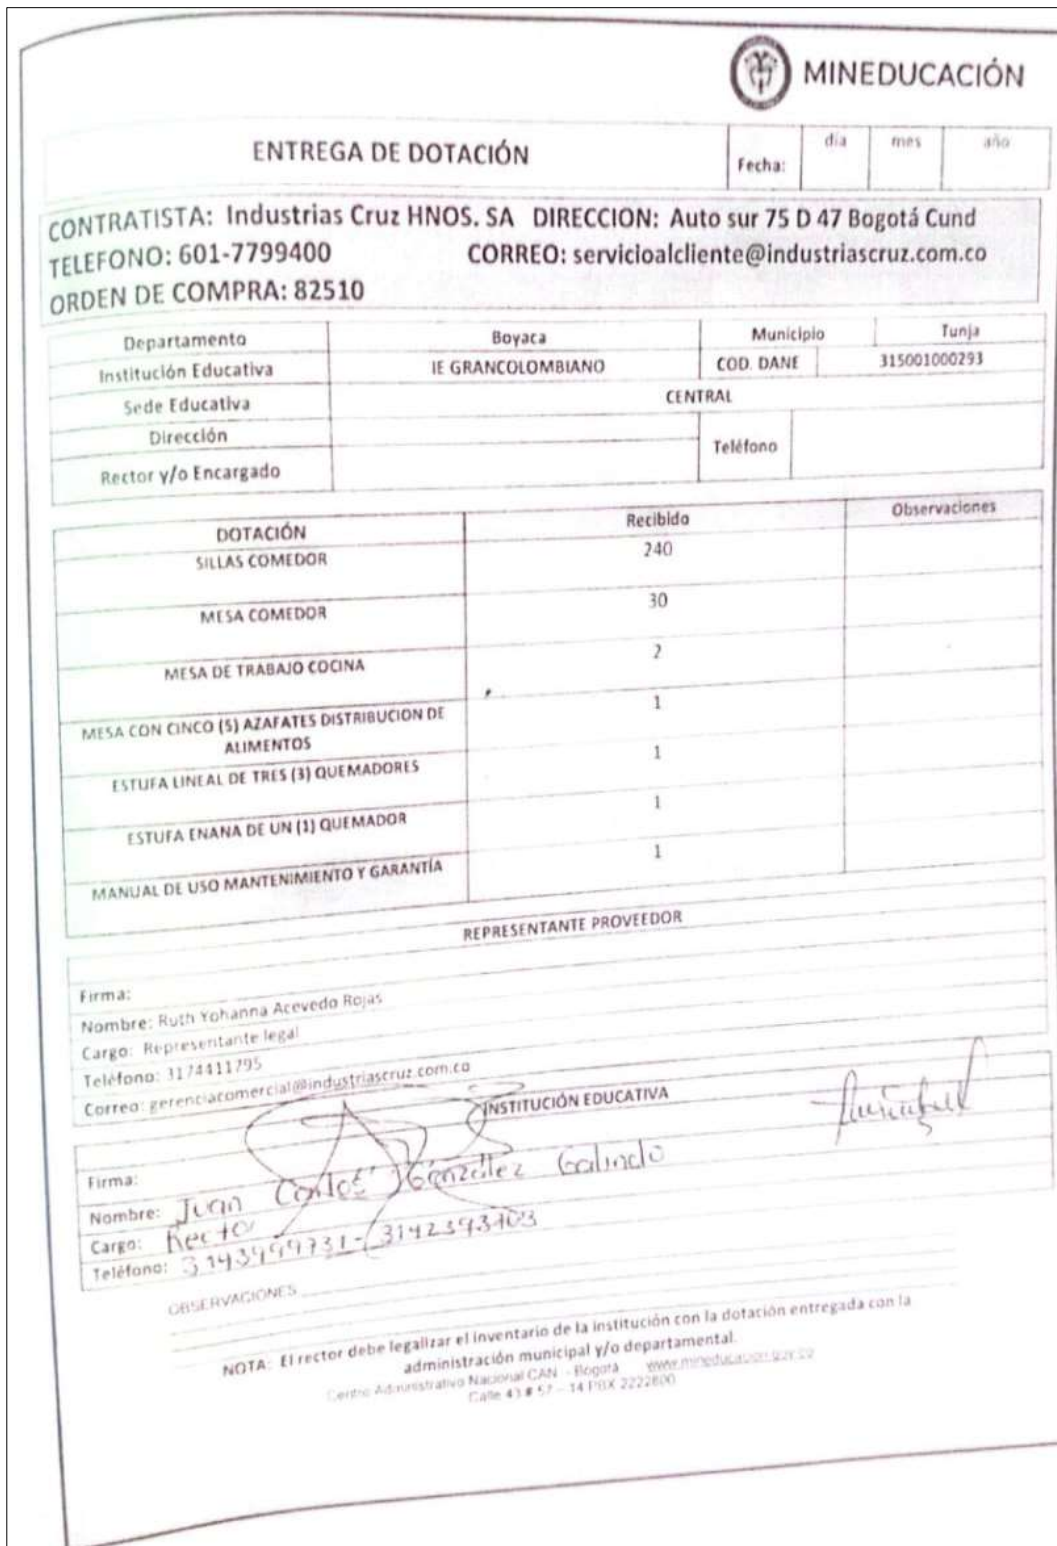 MINEDUCACIÓN
ENTREGA DE DOTACIÓN
Fecha:
día mes año
CONTRATISTA: Industrias Cruz HNOS. SA DIRECCION: Auto sur 75 D 47 Bogotá Cund
TELEFONO: 601-7799400 CORREO: servicioalcliente@industriascruz.com.co
ORDEN DE COMPRA: 82510
Departamento Boyaca Municipio Tunja
Institución Educativa IE GRANCOLOMBIANO COD. DANE 315001000293
Sede Educativa CENTRAL
Dirección
Teléfono
Rector y/o Encargado
DOTACIÓN Recibido Observaciones
SILLAS COMEDOR 240
MESA COMEDOR 30
MESA DE TRABAJO COCINA 2
MESA CON CINCO (5) AZAFATES DISTRIBUCION DE
ALIMENTOS 1
ESTUFA LINEAL DE TRES (3) QUEMADORES 1
ESTUFA ENANA DE UN (1) QUEMADOR 1
MANUAL DE USO MANTENIMIENTO Y GARANTÍA 1
REPRESENTANTE PROVEEDOR
Firma:
Nombre: Ruth Yohanna Acevedo Rojas
Cargo: Representante legal
Teléfono: 3174411795
Correo: gerenciacomercial@industriascruz.com.co
INSTITUCIÓN EDUCATIVA
Firma:
Nombre: Juan Carlos González Galindo
Cargo: Rector
Teléfono:
OBSERVACIONES
NOTA: El rector debe legalizar el inventario de la institución con la dotación entregada con la
administración municipal y/o departamental.
Centro Administrativo Nacional CAN - Bogotá www.mineducacion.gov.co
Calle 43 # 57 – 14 PBX 2222800